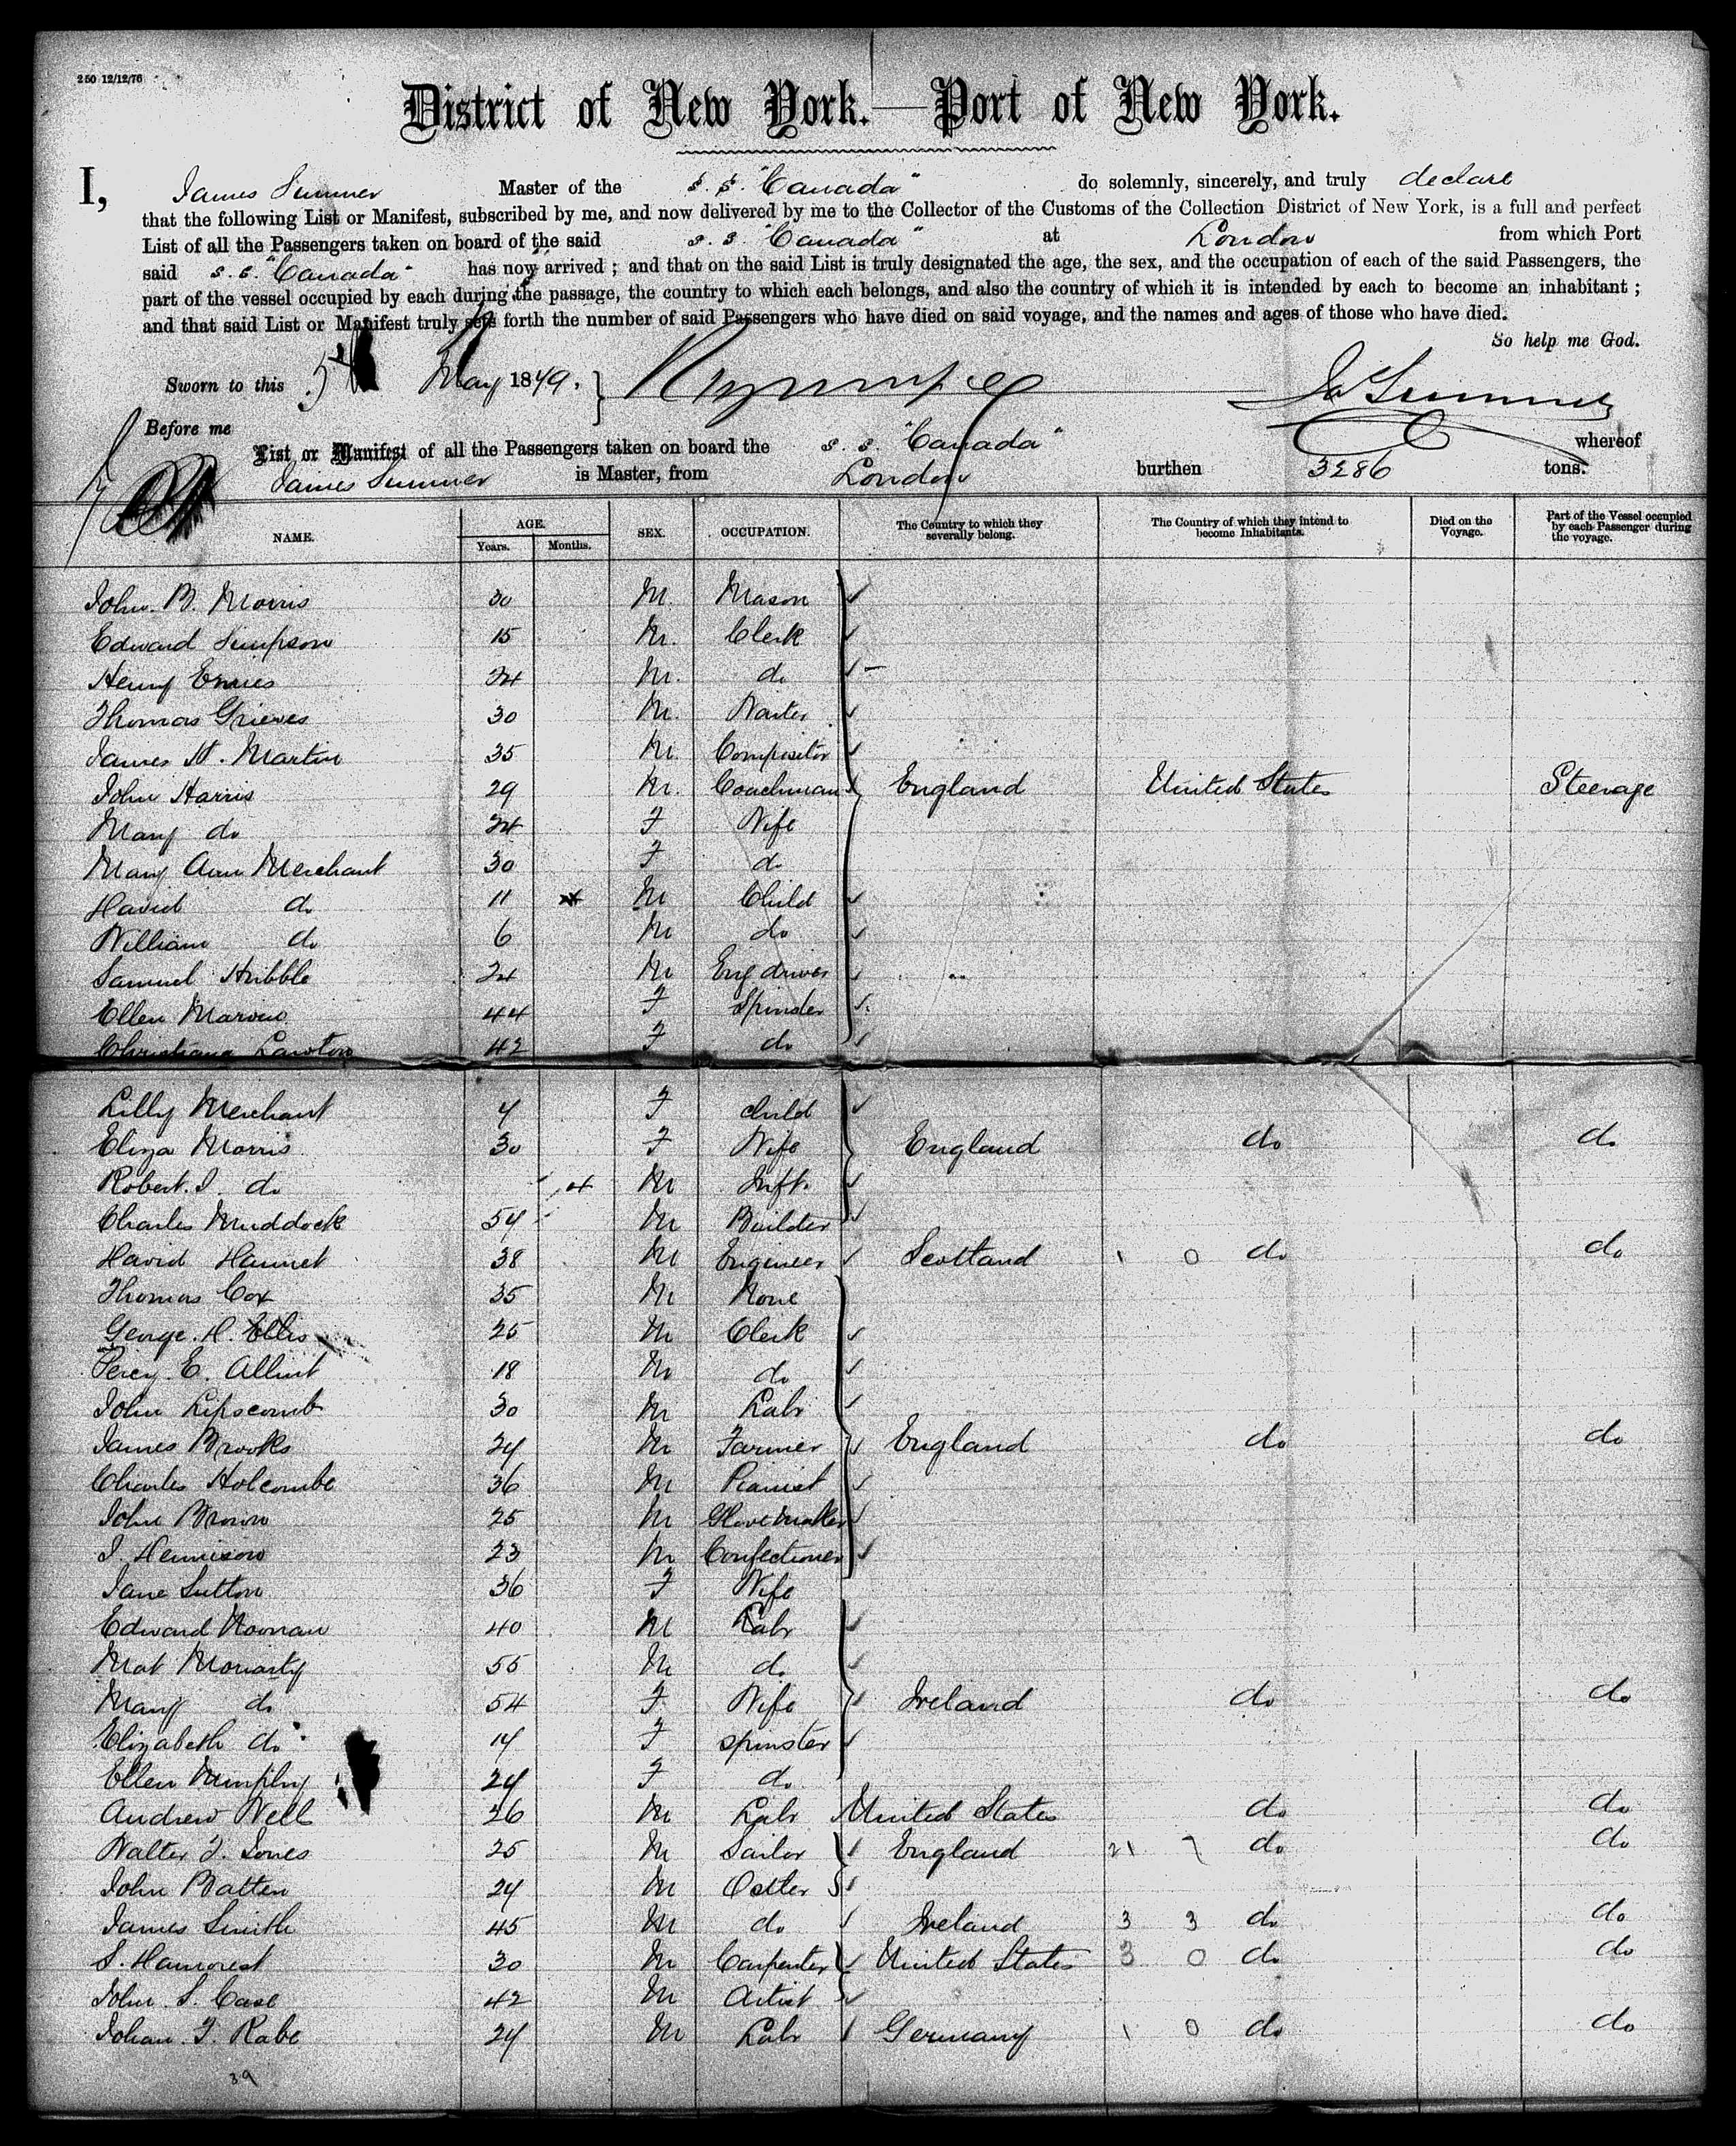 250 12/12/76
District of New York.—Port of New York.
I, James Sumner Master of the s. s. "Canada" do solemnly, sincerely, and truly declare
that the following List or Manifest, subscribed by me, and now delivered by me to the Collector of the Customs of the Collection District of New York, is a full and perfect
List of all the Passengers taken on board of the said s. s. "Canada" at London from which Port
said s. s. "Canada" has now arrived ; and that on the said List is truly designated the age, the sex, and the occupation of each of the said Passengers, the
part of the vessel occupied by each during the passage, the country to which each belongs, and also the country of which it is intended by each to become an inhabitant ;
and that said List or Manifest truly sets forth the number of said Passengers who have died on said voyage, and the names and ages of those who have died.
So help me God.
Sworn to this 5th May 1879. Js Sumner
Before me
List or Manifest of all the Passengers taken on board the s. s. "Canada" whereof
James Sumner is Master, from London burthen 3286 tons.
NAME. AGE. Years. Months. SEX. OCCUPATION. The Country to which they severally belong. The Country of which they intend to become Inhabitants. Died on the Voyage. Part of the Vessel occupied by each Passenger during the voyage.
John. B. Morris 30 M. Mason
Edward Simpson 15 M. Clerk
Henry 24 M. do
Thomas Grieves 30 M. Waiter
James H. Martin 35 M. Compositor
John Harris 29 M. Coachman England United States Steerage
Mary do 24 F Wife
Mary Ann Merchant 30 F do
David do 11 M Child
William do 6 M do
Samuel Hribble 24 M Eng driver
Ellen 44 F Spinster
Christiana Lawton 42 F do
Lilly Merchant 4 F child
Eliza Morris 30 F Wife England do do
Robert. J. do M Inft.
Charles Murddock 54 M Builder
David Hannet 38 M Engineer Scotland 1 0 do do
Thomas Cox 35 M None
George. H. Ellis 25 M Clerk
Percy. E. 18 M do
John Lipscomb 30 M Labr
James Brooks 24 M Farmer England do do
Charles Holcombe 36 M Pianist
John Brown 25 M Glovemaker
J. Dennison 23 M Confectioner
Jane Sutton 36 F Wife
Edward Noonan 40 M Labr
Mat Moriarty 55 M do
Mary do 54 F Wife Ireland do do
Elizabeth do 14 F spinster
Ellen Murphy 24 F do
Andrew Well 26 M Labr United States do do
Walter J. Jones 25 M Sailor England 21 7 do do
John Batten 24 M Ostler
James Smith 45 M do Ireland 3 3 do do
S. 30 M Carpenter United States 3 0 do do
John. S. Case 42 M Artist
Johan. F. Rabe 24 M Labr Germany 1 0 do do
39